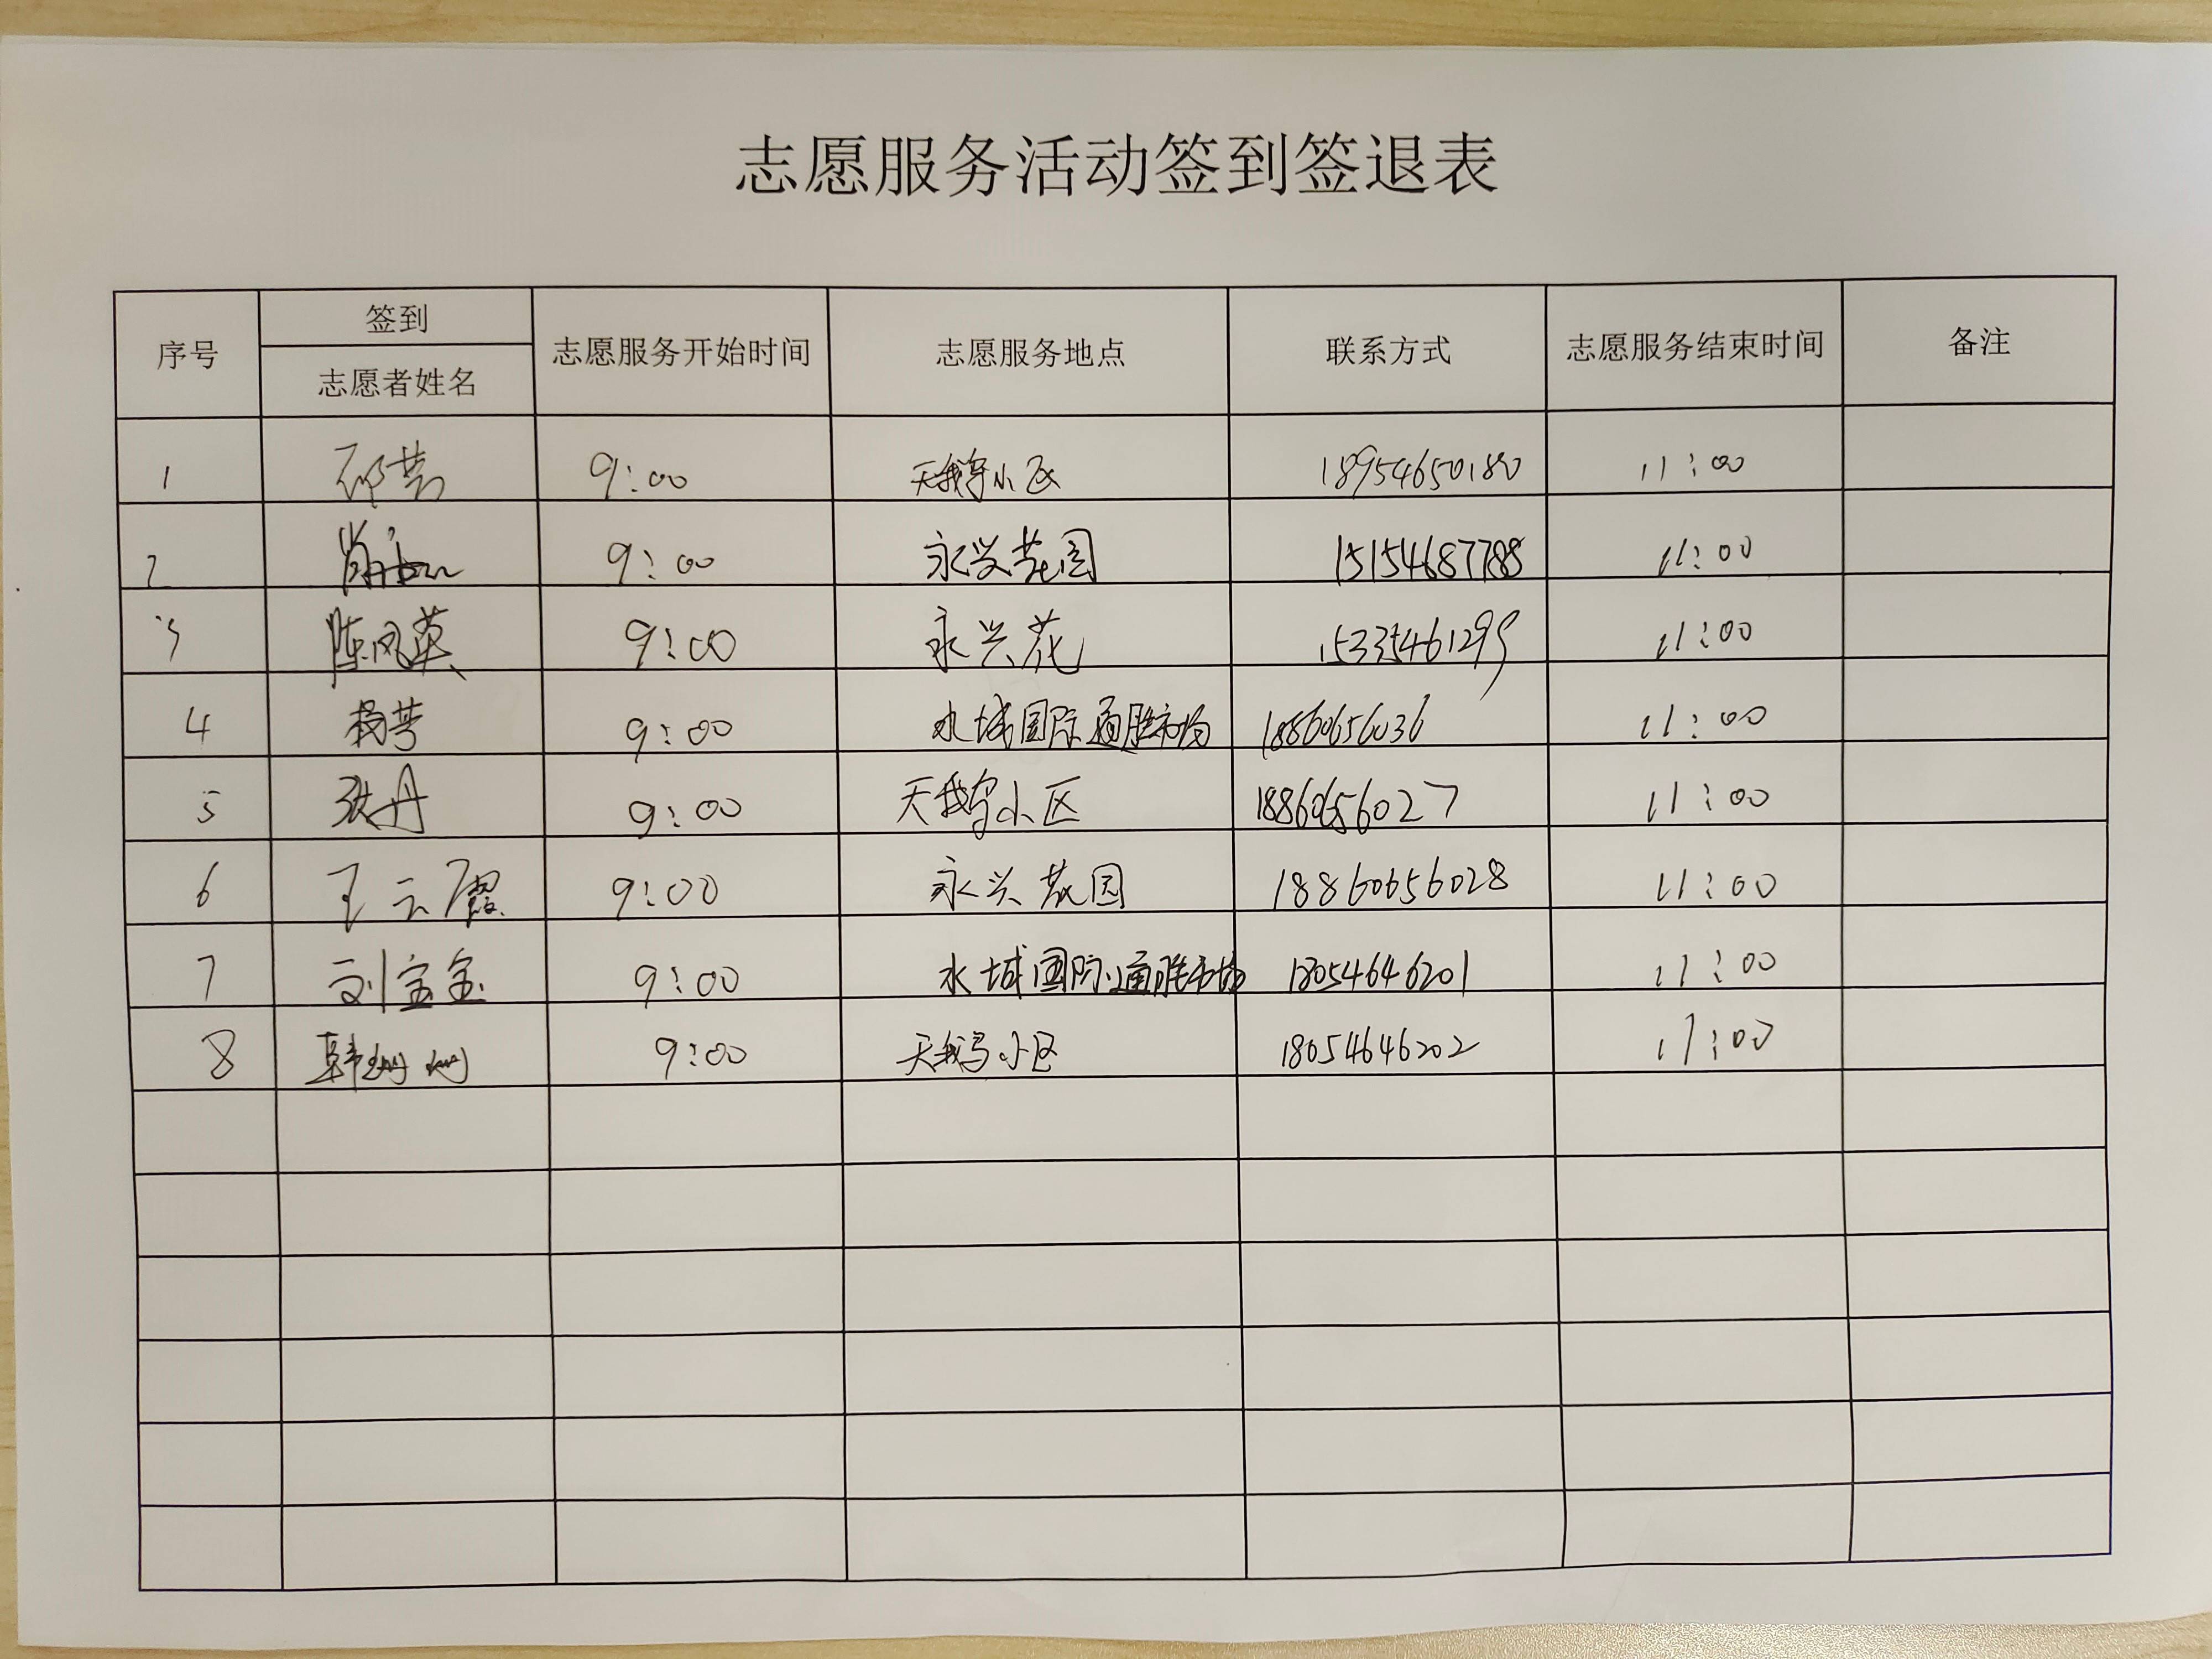 志愿服务活动签到签退表
序号 签到 志愿者姓名 志愿服务开始时间 志愿服务地点 联系方式 志愿服务结束时间 备注
1 9:00 天鹅小区 18954650180 11:00
2 9:00 永兴花园 15154687788 11:00
3 陈凤英 9:00 永兴花 15335461299 11:00
4 杨芳 9:00 水城国际通胜市场 18860656036 11:00
5 张丹 9:00 天鹅小区 18860656027 11:00
6 王云霞 9:00 永兴花园 18860656028 11:00
7 刘宝宝 9:00 水城国际通胜市场 18054646201 11:00
8 韩珊珊 9:00 天鹅小区 18054646202 11:00